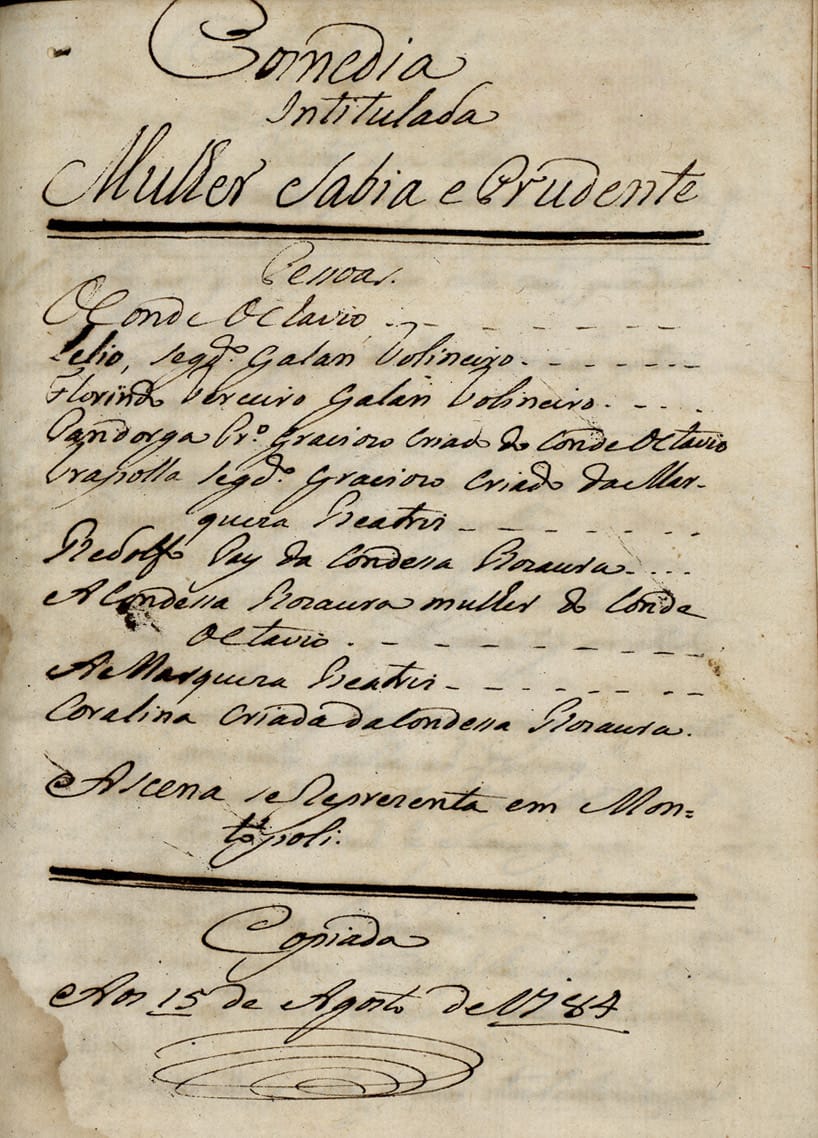 Comedia
Intitulada
Mulher Sabia e Prudente
Pessoas.
O Conde Octavio
Lelio, segdº. Galan Volineiro
Florindo terceiro Galan Volineiro
Pandorga Prº. Graciozo criado do Conde Octavio
Trapolla segdº. Graciozo Criado da Mar-
queza Beatris
Redolfo Pay da Condessa Rozaura
A Condessa Rozaura mulher do Conde
Octavio
A Marqueza Beatris
Coralina Criada da Condessa Rozaura.
A scena se Reprezenta em Mon=
topoli.
Copiada
Aos 15 de Agosto de 1784